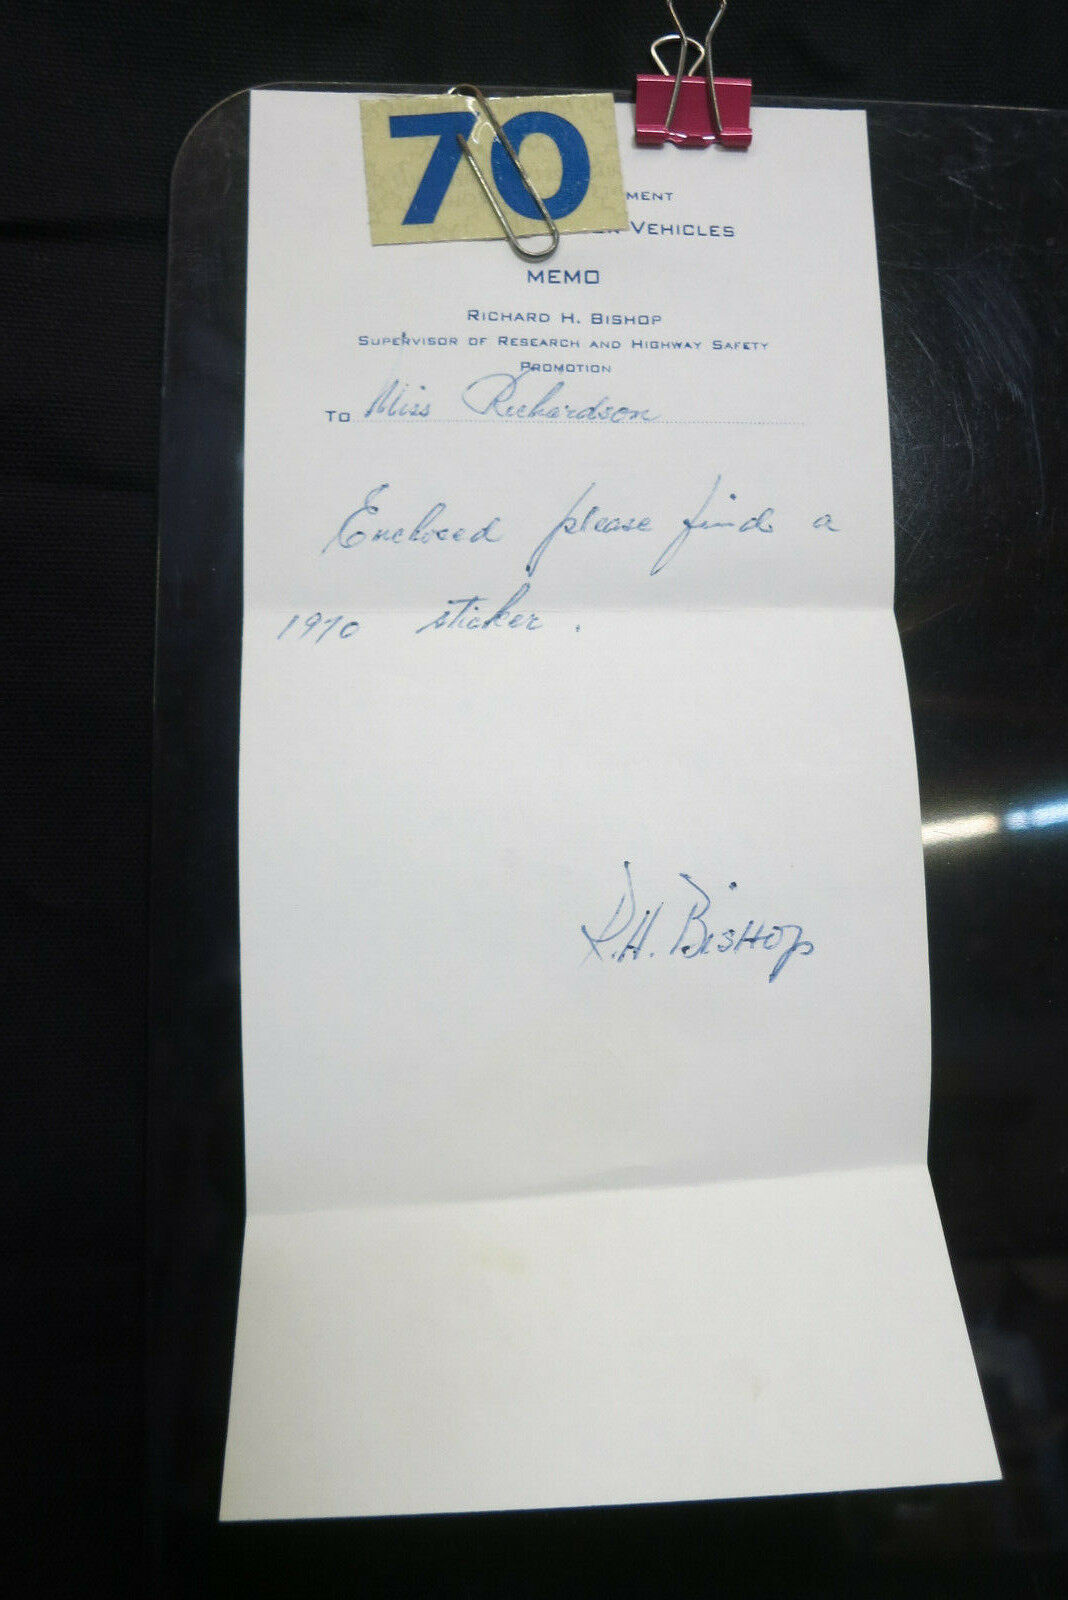 70
MENT
VEHICLES
MEMO
RICHARD H. BISHOP
SUPERVISOR OF RESEARCH AND HIGHWAY SAFETY
PROMOTION
TO Miss Richardson
Enclosed please find a
1970 sticker.
R.H. BISHOP